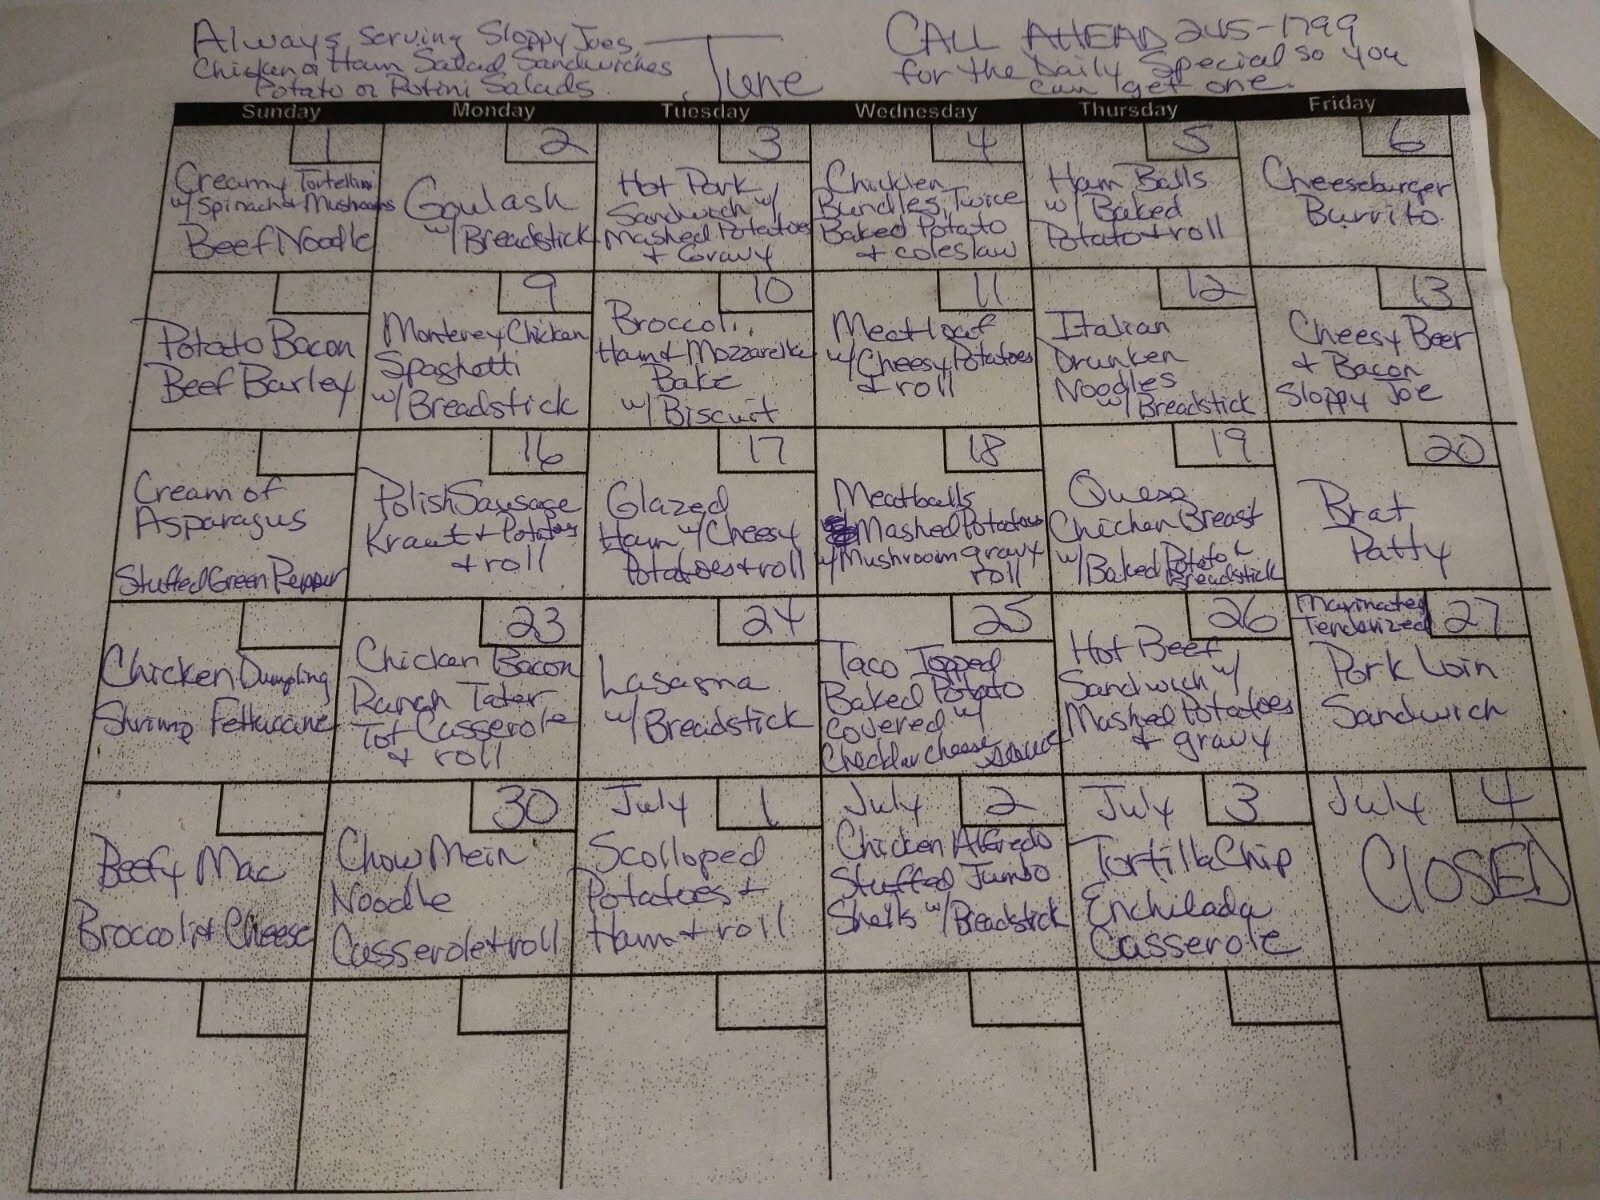 Always serving Sloppy Joes,
Chicken or Ham Salad Sandwiches
Potato or Rotini Salads.
June
CALL AHEAD 245-1799
for the Daily Special so you
can get one.
Sunday Monday Tuesday Wednesday Thursday Friday
1
Creamy Tortellini
w/ Spinach & Mushrooms
Beef Noodle
2
Goulash
w/ Breadstick
3
Hot Pork
Sandwich w/
Mashed Potatoes
+ Gravy
4
Chicken
Bundles, Twice
Baked Potato
+ coleslaw
5
Ham Balls
w/ Baked
Potato + roll
6
Cheeseburger
Burrito
Potato Bacon
Beef Barley
9
Monterey Chicken
Spaghetti
w/ Breadstick
10
Broccoli,
Ham + Mozzarella
Bake
w/ Biscuit
11
Meatloaf
w/ Cheesy Potatoes
+ roll
12
Italian
Drunken
Noodles
w/ Breadstick
13
Cheesy Beer
+ Bacon
Sloppy Joe
Cream of
Asparagus
Stuffed Green Pepper
16
Polish Sausage
Kraut + Potatoes
+ roll
17
Glazed
Ham w/ Cheesy
Potatoes + roll
18
Meatballs
Mashed Potatoes
w/ Mushroom gravy
roll
19
Queso
Chicken Breast
w/ Baked Potato +
Breadstick
20
Brat
Patty
Chicken Dumpling
Shrimp Fettuccine
23
Chicken Bacon
Ranch Tater
Tot Casserole
+ roll
24
Lasagna
w/ Breadstick
25
Taco Topped
Baked Potato
Covered w/
Cheddar cheese sauce
26
Hot Beef
Sandwich w/
Mashed Potatoes
+ gravy
Marinated
Tenderized 27
Pork Loin
Sandwich
Beefy Mac
Broccoli + Cheese
30
Chow Mein
Noodle
Casserole + roll
July 1
Scolloped
Potatoes +
Ham + roll
July 2
Chicken Alfredo
Stuffed Jumbo
Shells w/ Breadstick
July 3
Tortilla Chip
Enchilada
Casserole
July 4
CLOSED